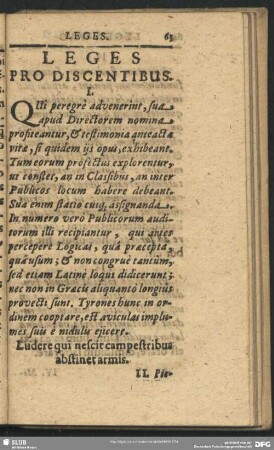 LEGES. 63
LEGES
PRO DISCENTIBUS.
I.
QUi peregrè advenerint, sua
apud Directorem nomina
profiteantur, & testimonia anteactæ
vitæ, si quidem ijs opus, exhibeant.
Tum eorum profectus explorentur,
ut constet, an in Classibus, an inter
Publicos locum habere debeant.
Sua enim statio cuiq; assignanda.
In numero verò Publicorum audi-
torum illi recipiantur, qui ante
percepere Logicai, quà præcepta,
quà usum; & non congruè tantùm,
sed etiam Latinè loqui didicerunt;
nec non in Græcis aliquantò longiùs
provecti sunt. Tyrones hunc in or-
dinem cooptare, est aviculas implu-
mes suis è nidulis ejicere.
Ludere qui nescit campestribus
abstinet armis.
II. Pie-
SLUB